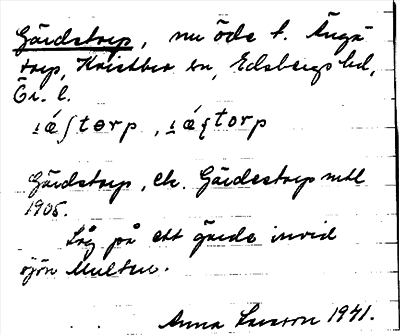 Gärdstorp, nu öde t. Änga
torp, Kvistbro sn, Edsbergs hd,
Ör. l.
ɪǽʃtɵrp, ɪǽʃtorp
Gärdstorp, ek. Gärdestorp mtl
1905.
Låg på ett gärde invid
sjön Multen.
Anna Larsson 1941.